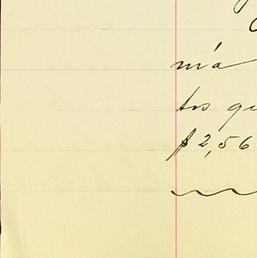 má
tos qu
$2,56